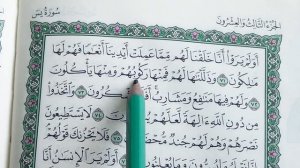 الجزء الثالث والعشرون
سورة يس
أَوَلَمْ يَرَوْا۟ أَنَّا خَلَقْنَا لَهُم مِّمَّا عَمِلَتْ أَيْدِينَآ أَنْعَٰمًا فَهُمْ لَهَا
مَٰلِكُونَ ٧١ وَذَلَّلْنَٰهَا لَهُمْ فَمِنْهَا رَكُوبُهُمْ وَمِنْهَا يَأْكُلُونَ
٧٢ وَلَهُمْ فِيهَا مَنَٰفِعُ وَمَشَارِبُ أَفَلَا يَشْكُرُونَ ٧٣ وَٱتَّخَذُوا۟
مِن دُونِ ٱللَّهِ ءَالِهَةً لَّعَلَّهُمْ يُنصَرُونَ ٧٤ لَا يَسْتَطِيعُونَ
نَصْرَهُمْ وَهُمْ لَهُمْ جُندٌ مُّحْضَرُونَ ٧٥ فَلَا يَحْزُنكَ قَوْلُهُمْ
يُعْلِنُونَ ٧٦ أَوَلَمْ يَرَ ٱلْإِنسَٰنُ أَنَّا